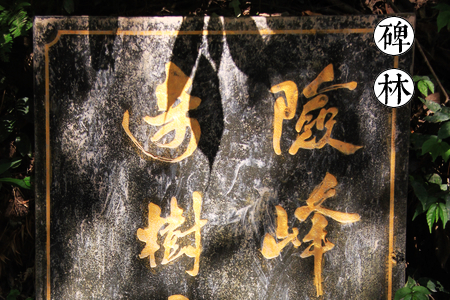 碑林
險峰
樹